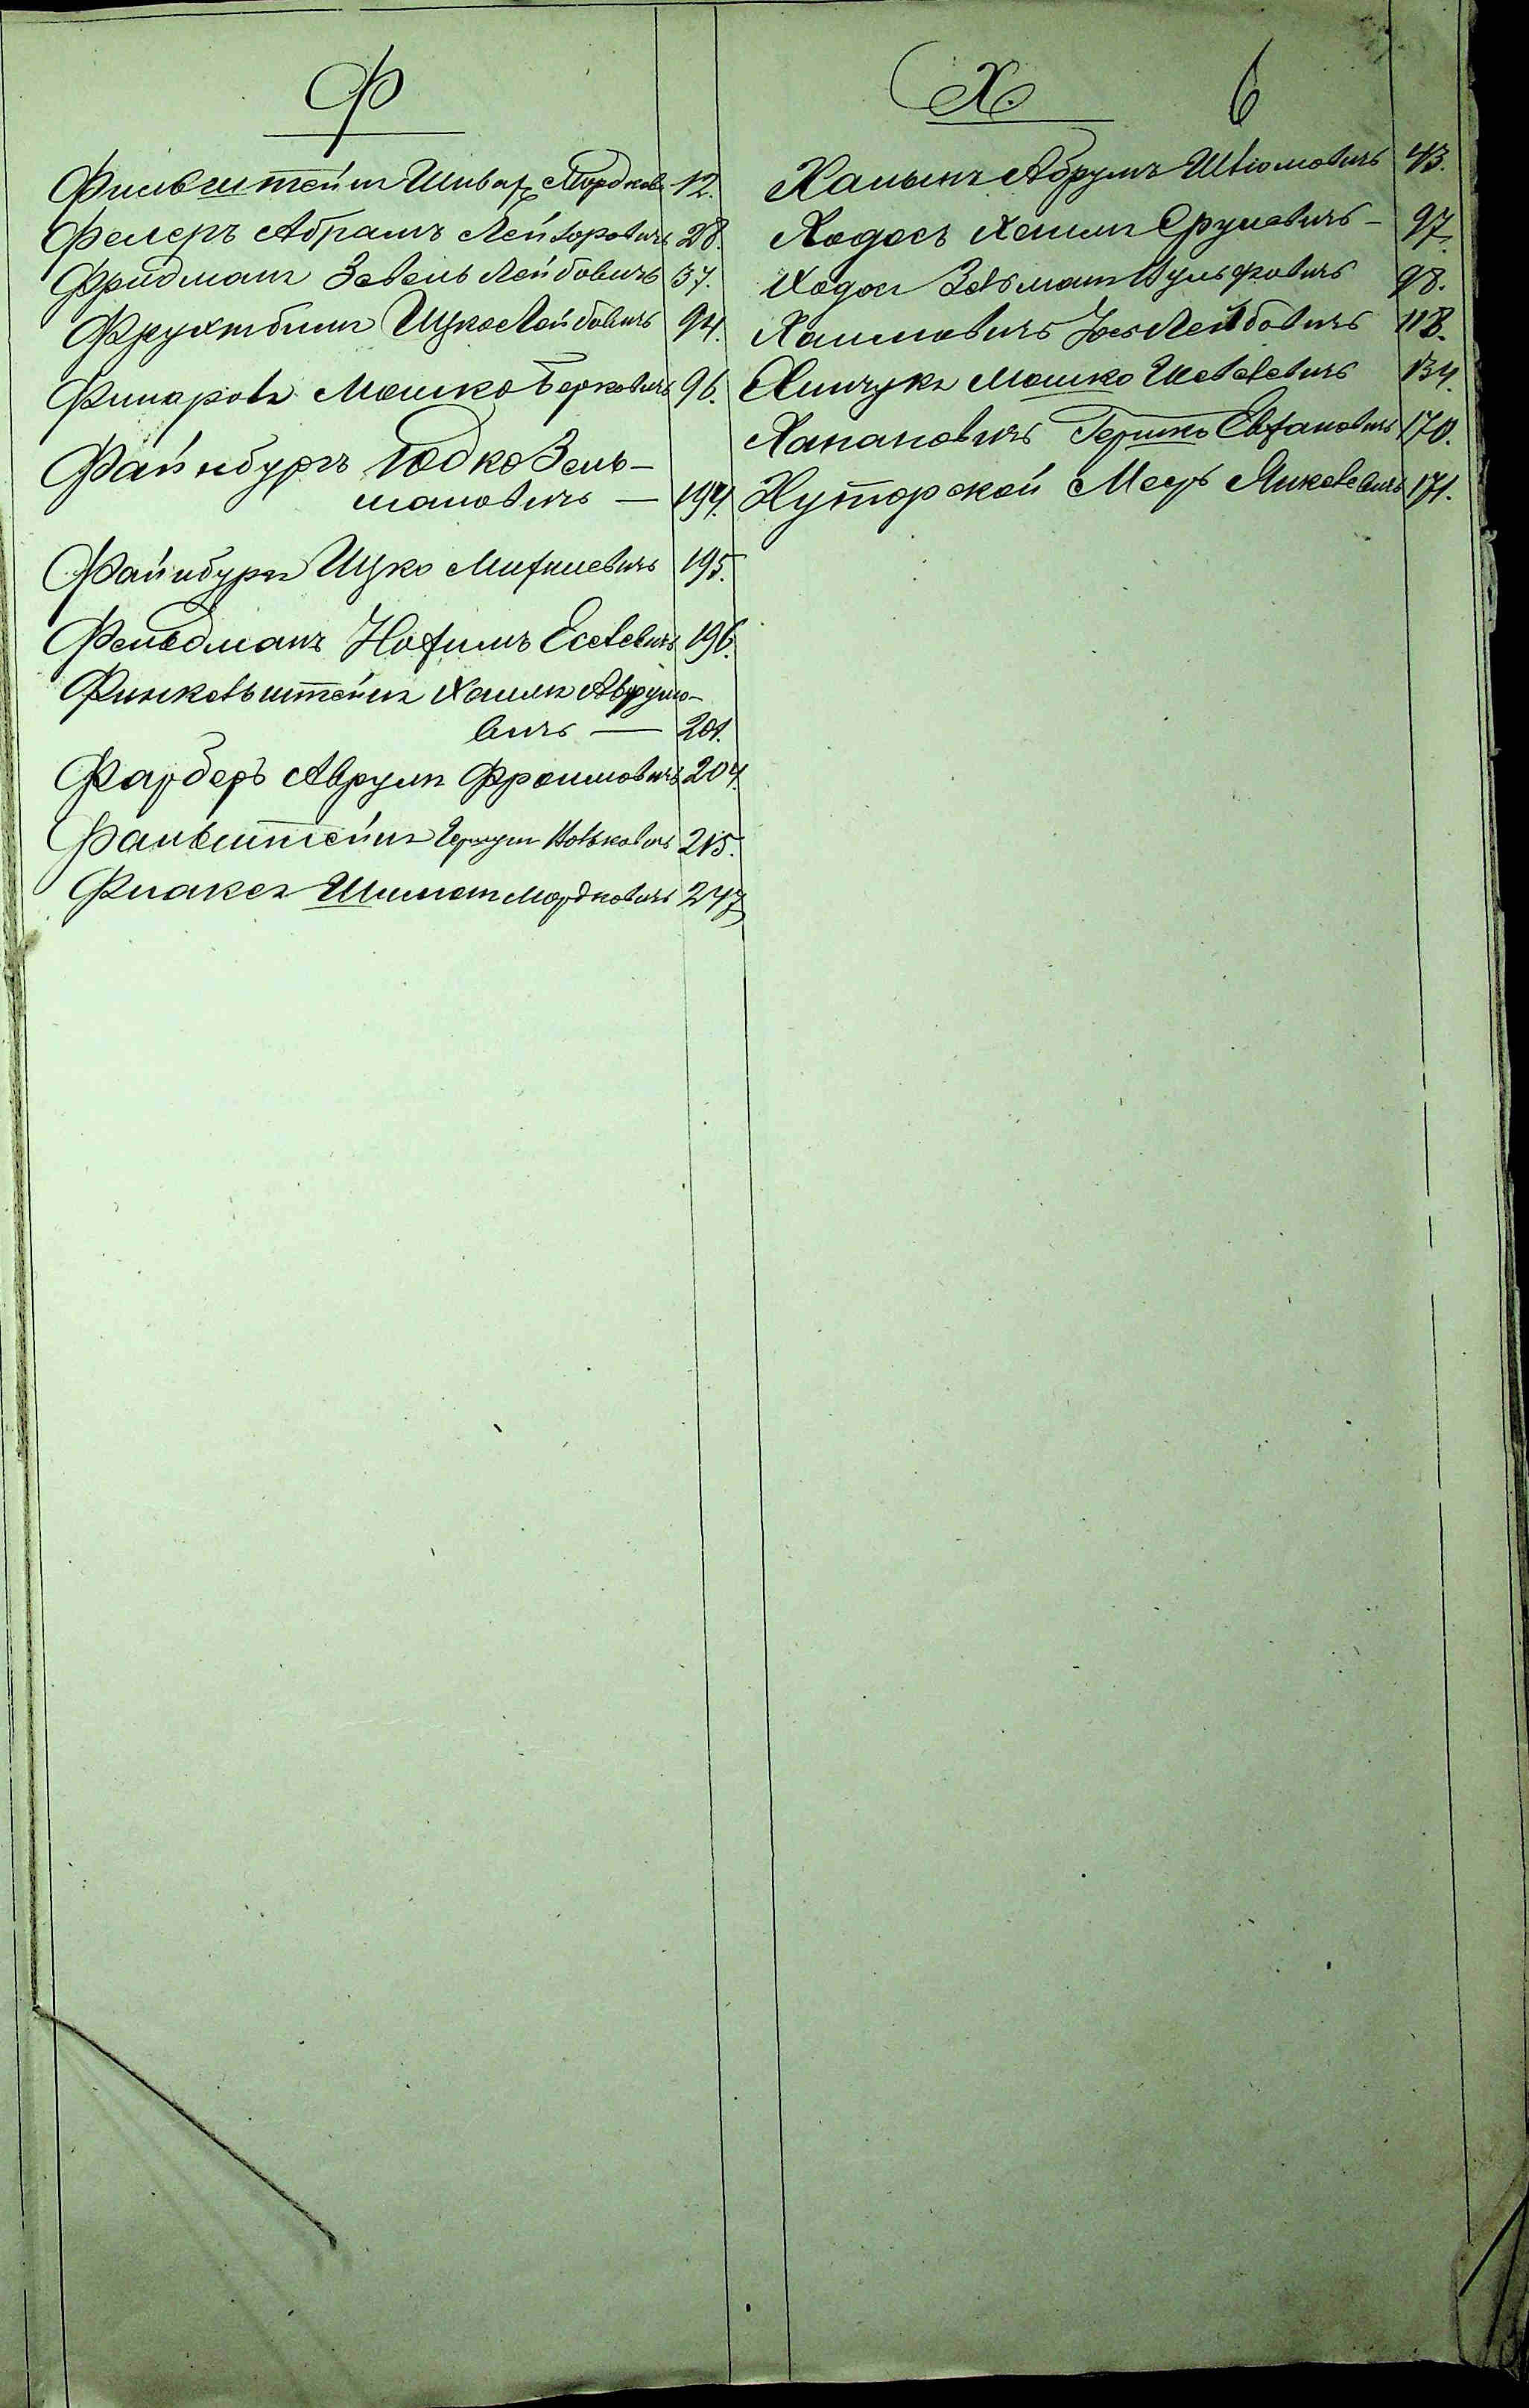 Ф
Фильштейнъ Мордков 12.
Фелеръ Абрамъ Лейзоровичъ 28.
Фридманъ Зевель Лейбовичъ 37.
Фрухтбинъ Ицко Лейбовичъ 94.
Финаровъ Мошко Берковичъ 96.
Файнбургъ Юдко Зель-
мановичъ — 194.
Файнбургъ Ицко 195.
Фельдманъ Нохимъ Еселевичъ 196.
Финкельштейнъ Хаимъ Аврумо-
вичъ — 201.
Фарберъ Аврумъ Фроимовичъ 204.
Фальштейнъ Вольковичъ 215.
Фиаксъ Шимонъ Мордковичъ 247
Х. 6
Халынъ Абрумъ Шліомовичъ 43.
Ходосъ Хаимъ Срулевичъ - 97.
Ходосъ Зельманъ Вульфовичъ 98.
Хаимовичъ Іось Лейбовичъ 118.
Хинчукъ Мошко Шевелевичъ 134.
Хапановичъ Гершко 170.
Хуторской Меръ Янкелевичъ 171.